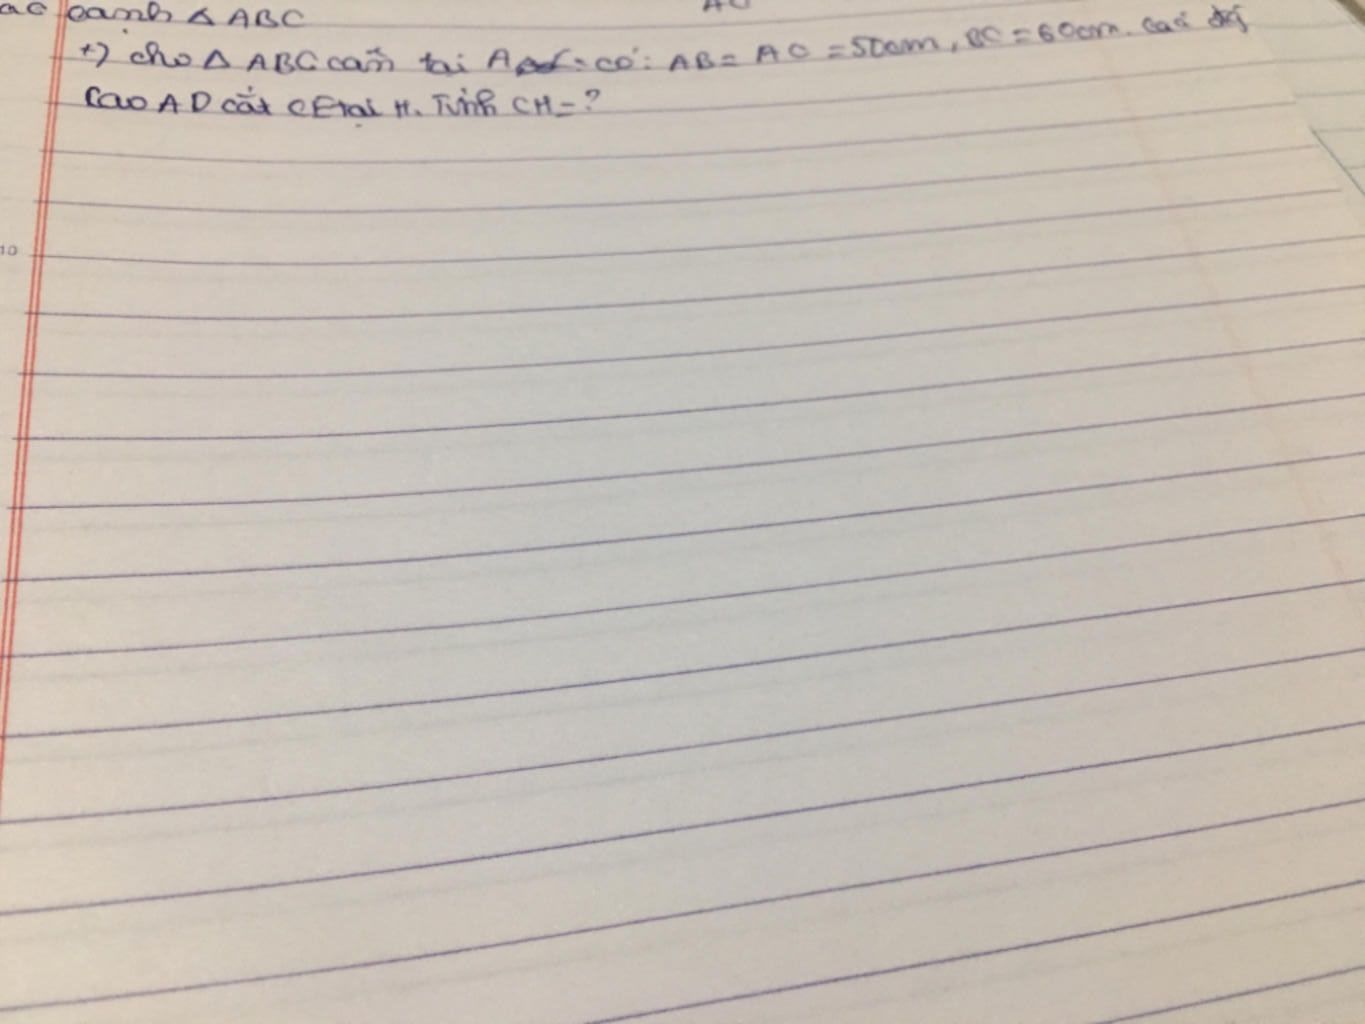 ac cạnh △ ABC
AC
+) cho △ ABC cân tại A có: AB = AC = 50cm, BC = 60cm. Các đg
Cao AD cắt CE tại H. Tính CH = ?
10